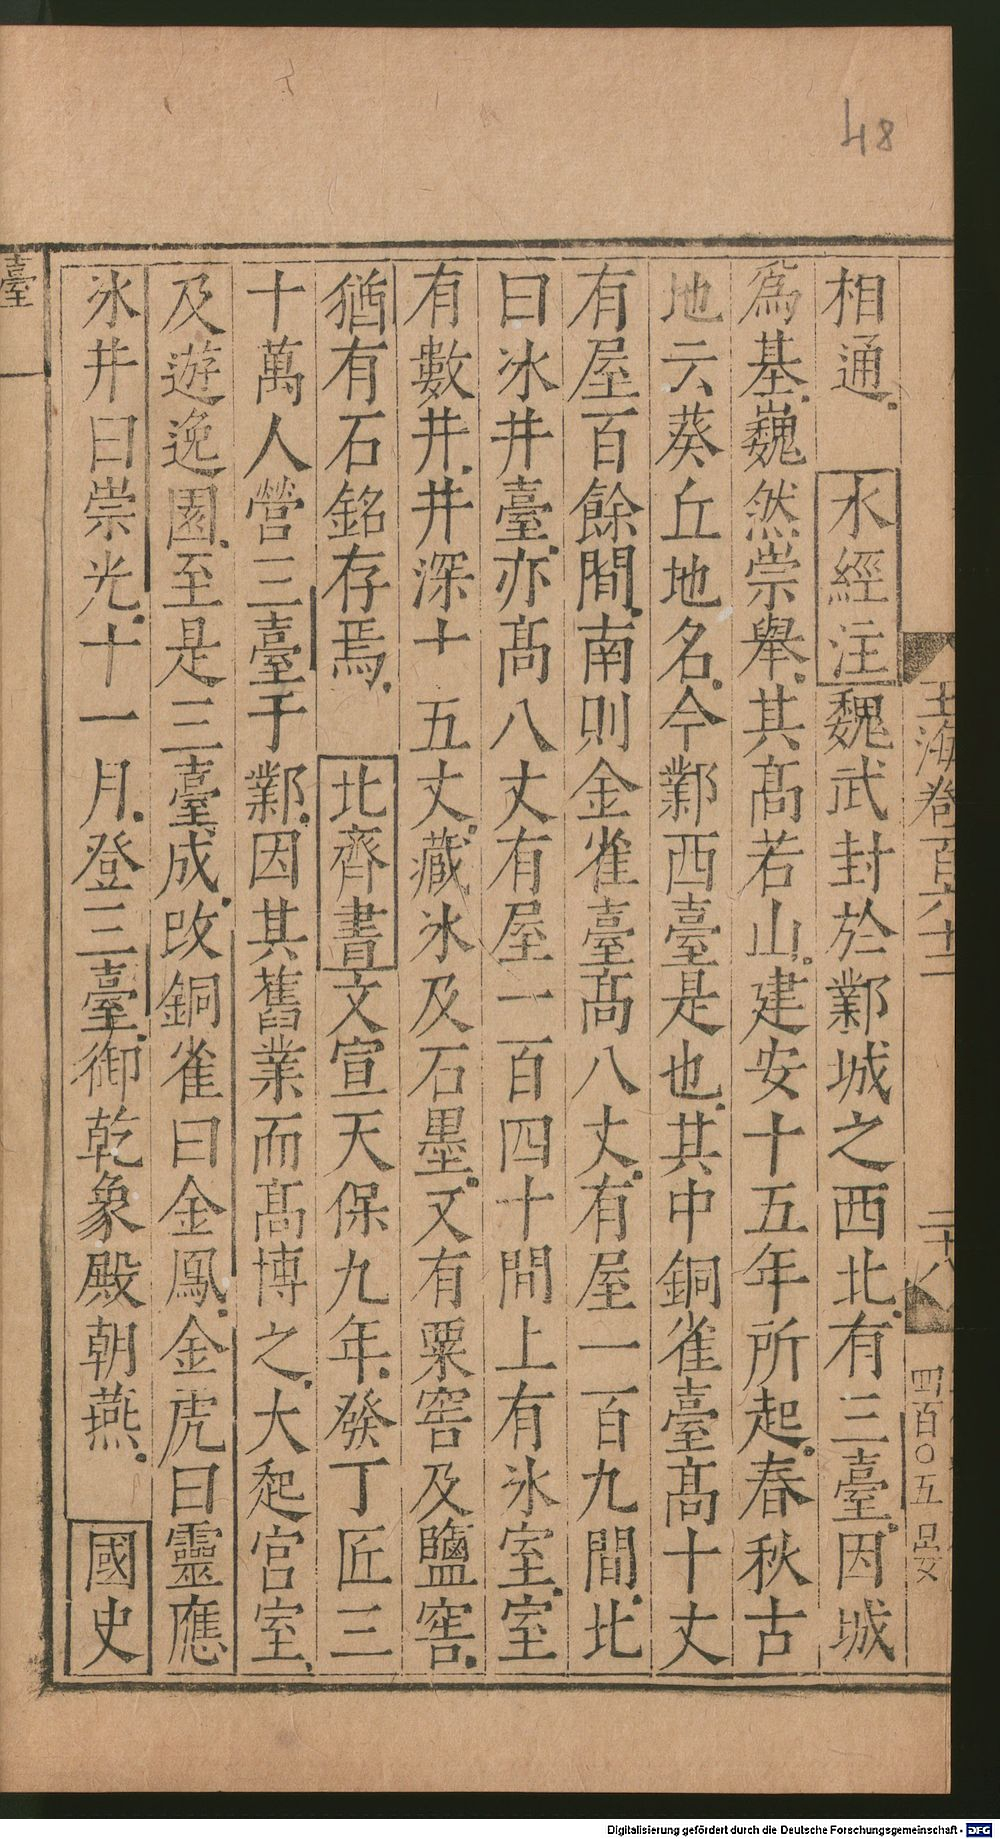 48
玉海卷百六十二
二十八
四百〇五
相通水經注魏武封於鄴城之西北有三臺因城
爲基巍然崇舉其髙若山建安十五年所起春秋古
地云葵丘地名今鄴西臺是也其中銅雀臺髙十丈
有屋百餘間南則金雀臺髙八丈有屋一百九間北
曰氷井臺亦髙八丈有屋一百四十間上有氷室室
有數井井深十五丈藏氷及石墨又有粟窖及鹽窖
猶有石銘存焉北齊書文宣天保九年發丁匠三
十萬人營三臺于鄴因其舊業而髙博之大起宫室
及遊逸園至是三臺成改銅雀曰金鳳金虎曰靈應
氷井曰崇光十一月登三臺御乾象殿朝燕國史
臺
Digitalisierung gefördert durch die Deutsche Forschungsgemeinschaft - DFG